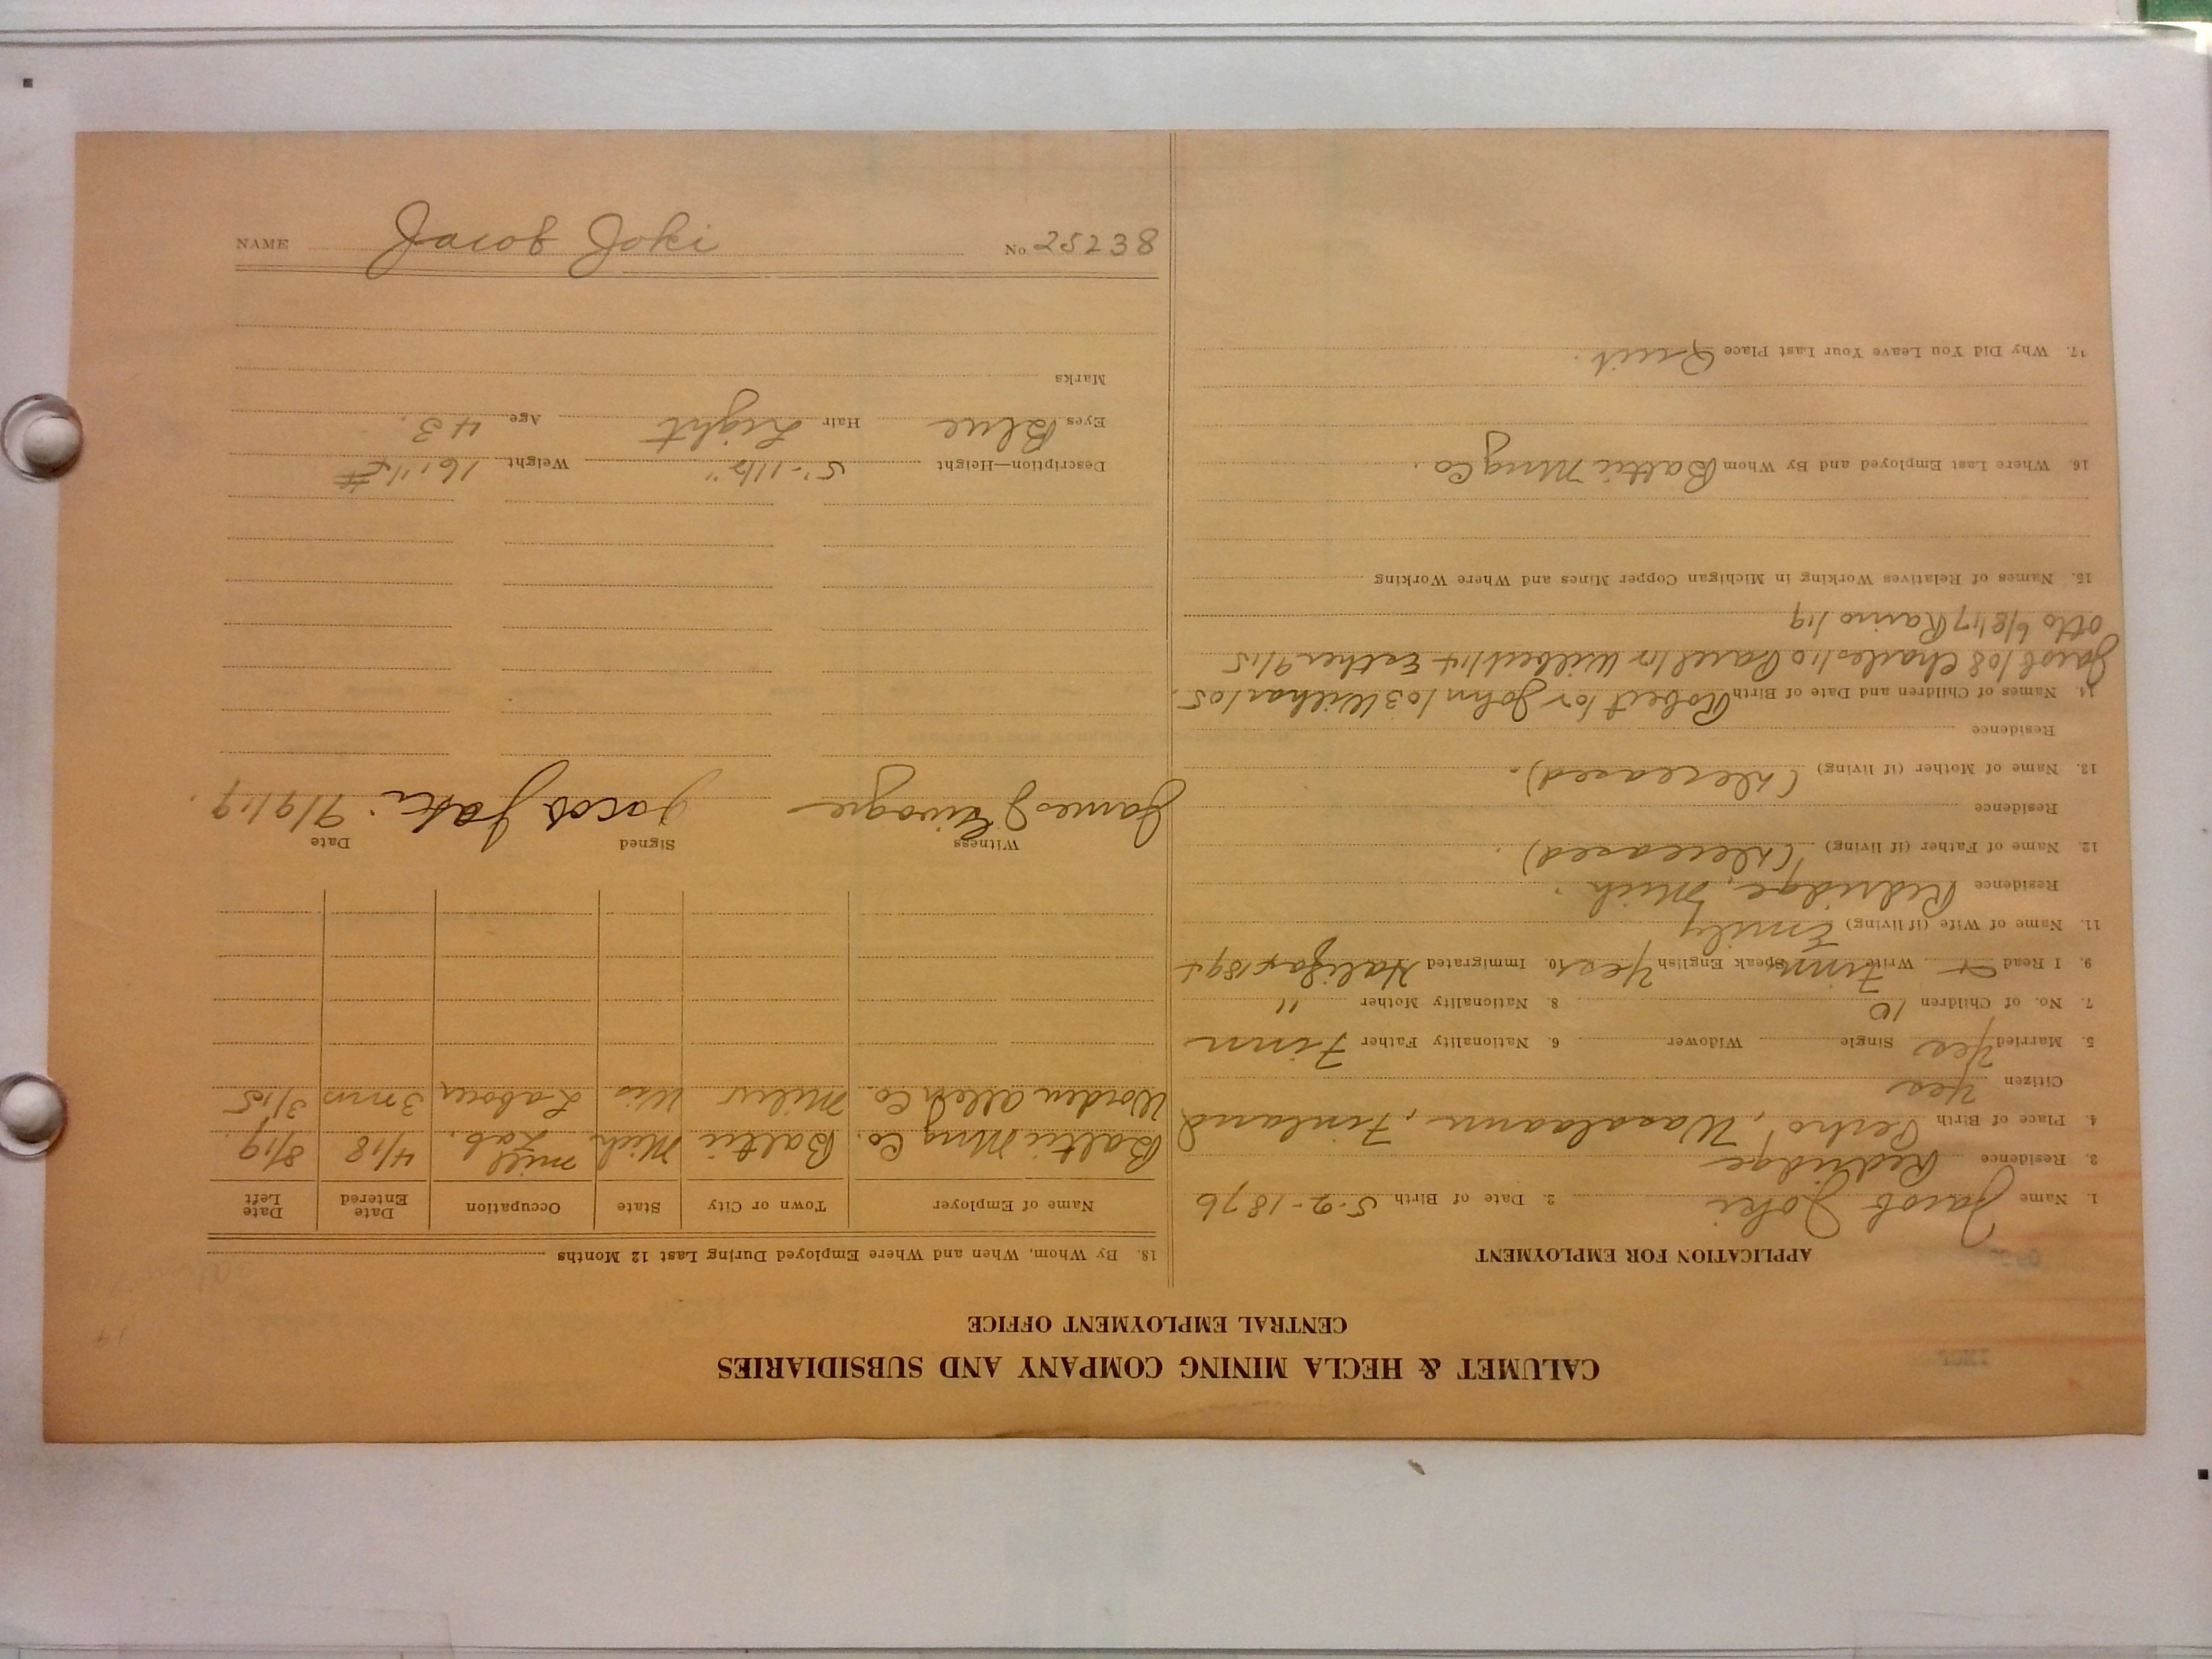 CALUMET & HECLA MINING COMPANY AND SUBSIDIARIES
CENTRAL EMPLOYMENT OFFICE
APPLICATION FOR EMPLOYMENT
1. Name Jacob Joki 2. Date of Birth 5-2-1876
3. Residence Redridge
4. Place of Birth Perho, Wasalaani, Finland
Citizen Yes
5. Married Yes Single Widower 6. Nationality Father Finn
7. No. of Children 10 8. Nationality Mother "
9. I Read + Write Finn Speak English Yes 10. Immigrated Halifax 1894
11. Name of Wife (if living) Emily
Residence Redridge, Mich.
12. Name of Father (if living) (Deceased).
Residence
13. Name of Mother (if living) (Deceased).
Residence
14. Names of Children and Date of Birth Robert John /03 /05.
Jacob /08 Charles /10 Wilbert /14 Esther 9/15
Otto 6/8/17 /19
15. Names of Relatives Working in Michigan Copper Mines and Where Working
16. Where Last Employed and By Whom Baltic Mng Co.
17. Why Did You Leave Your Last Place Quit.
18. By Whom, When and Where Employed During Last 12 Months
Name of Employer Town or City State Occupation Date Entered Date Left
Baltic Mng Co. Baltic Mich Mill Lab. 4/18 8/19.
Worden Allen Co. Milw Wis Laborer 3 mns 3/15
Witness Signed Date
James Jacob Joki. 9/9/19.
Description—Height 5'-11½" Weight
Eyes Blue Hair Light Age 43.
Marks
NAME Jacob Joki No. 25238